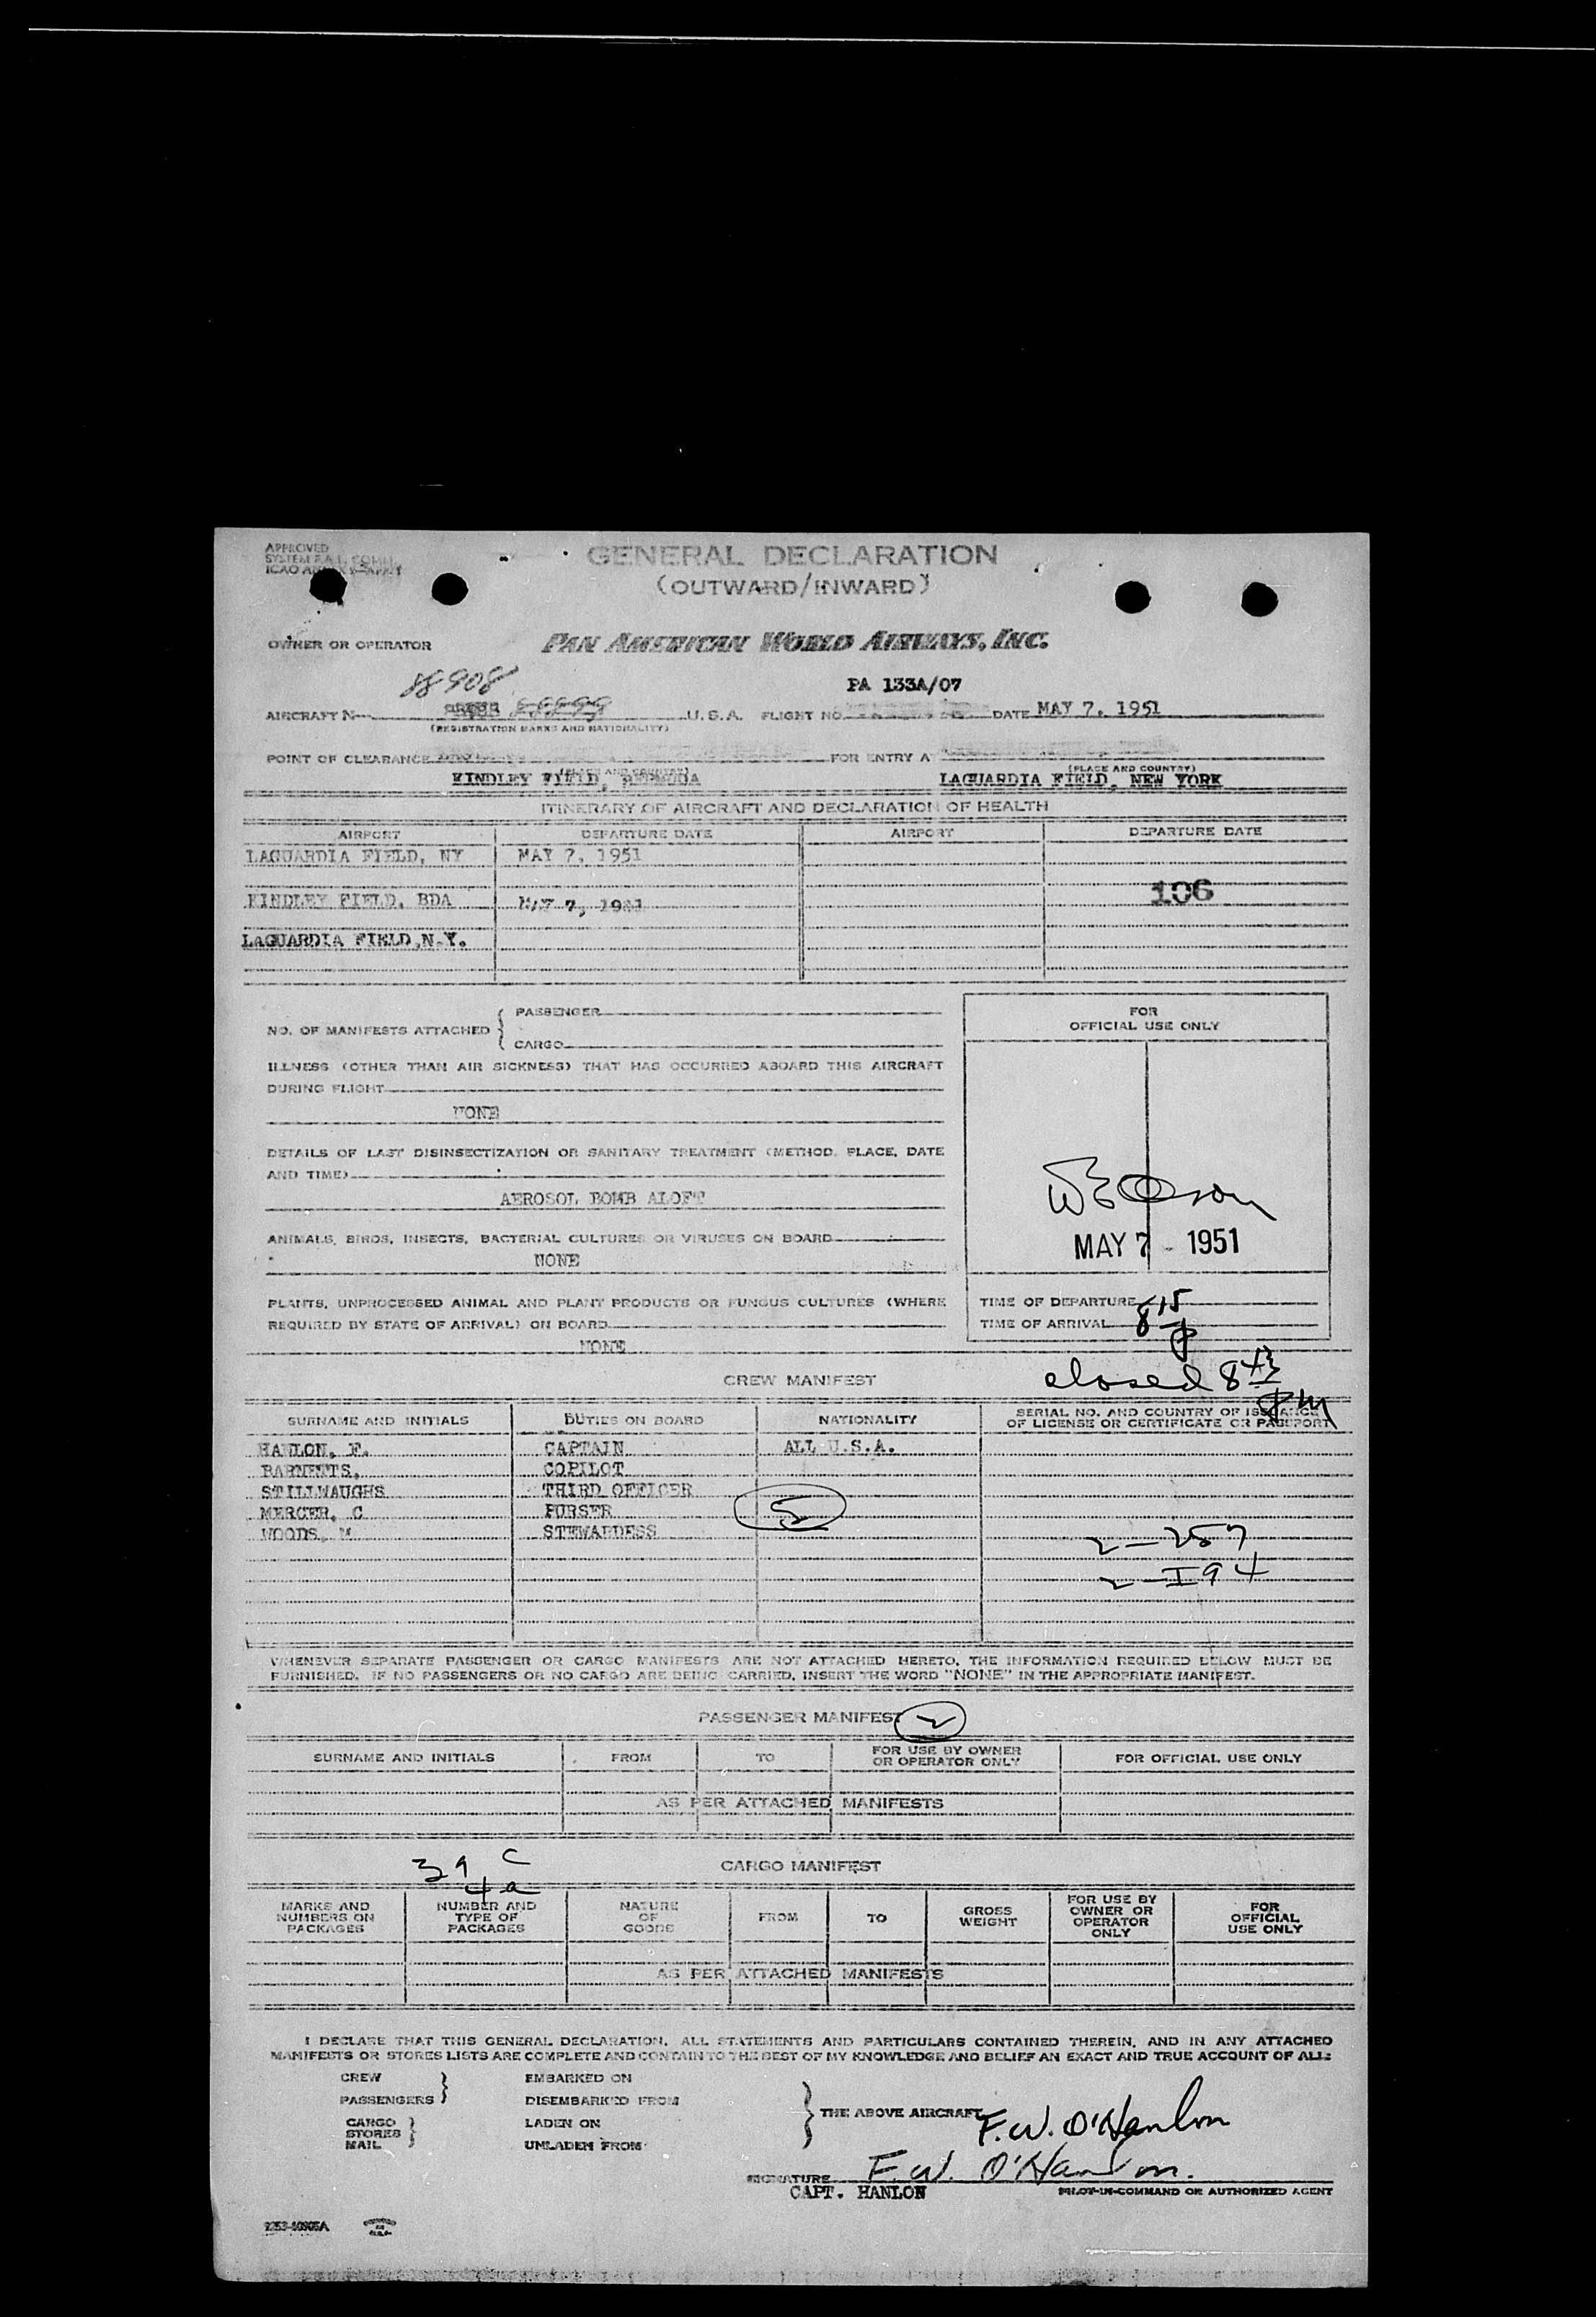 APPROVED
SYSTEM F.A.L. COMM.
ICAO
GENERAL DECLARATION
(OUTWARD/INWARD)
OWNER OR OPERATOR PAN AMERICAN WORLD AIRWAYS, INC.
88908
PA 133A/07
AIRCRAFT N U.S.A. FLIGHT NO. DATE MAY 7, 1951
(REGISTRATION MARKS AND NATIONALITY)
POINT OF CLEARANCE FOR ENTRY AT
(PLACE AND COUNTRY) (PLACE AND COUNTRY)
KINDLEY FIELD, BERMUDA LAGUARDIA FIELD, NEW YORK
ITINERARY OF AIRCRAFT AND DECLARATION OF HEALTH
AIRPORT DEPARTURE DATE AIRPORT DEPARTURE DATE
LAGUARDIA FIELD, NY MAY 7, 1951
KINDLEY FIELD, BDA MAY 7, 1951 106
LAGUARDIA FIELD, N.Y.
NO. OF MANIFESTS ATTACHED { PASSENGER
CARGO
FOR
OFFICIAL USE ONLY
ILLNESS (OTHER THAN AIR SICKNESS) THAT HAS OCCURRED ABOARD THIS AIRCRAFT
DURING FLIGHT
NONE
DETAILS OF LAST DISINSECTIZATION OR SANITARY TREATMENT (METHOD, PLACE, DATE
AND TIME)
AEROSOL BOMB ALOFT
ANIMALS, BIRDS, INSECTS, BACTERIAL CULTURES OR VIRUSES ON BOARD
NONE
MAY 7 - 1951
PLANTS, UNPROCESSED ANIMAL AND PLANT PRODUCTS OR FUNGUS CULTURES (WHERE
REQUIRED BY STATE OF ARRIVAL) ON BOARD
NONE
TIME OF DEPARTURE
TIME OF ARRIVAL 8 15 p
closed 8 43 pm
CREW MANIFEST
SURNAME AND INITIALS DUTIES ON BOARD NATIONALITY SERIAL NO. AND COUNTRY OF ISSUANCE
OF LICENSE OR CERTIFICATE OR PASSPORT
HANLON, F. CAPTAIN ALL U.S.A.
BARNETTS, COPILOT
STILLWAUGHS THIRD OFFICER
MERCER, C PURSER 5
WOODS, M STEWARDESS
2 - 257
2 - I94
WHENEVER SEPARATE PASSENGER OR CARGO MANIFESTS ARE NOT ATTACHED HERETO, THE INFORMATION REQUIRED BELOW MUST BE
FURNISHED. IF NO PASSENGERS OR NO CARGO ARE BEING CARRIED, INSERT THE WORD "NONE" IN THE APPROPRIATE MANIFEST.
PASSENGER MANIFEST 2
SURNAME AND INITIALS FROM TO FOR USE BY OWNER
OR OPERATOR ONLY FOR OFFICIAL USE ONLY
AS PER ATTACHED MANIFESTS
39 c
4 a
CARGO MANIFEST
MARKS AND
NUMBERS ON
PACKAGES NUMBER AND
TYPE OF
PACKAGES NATURE
OF
GOODS FROM TO GROSS
WEIGHT FOR USE BY
OWNER OR
OPERATOR
ONLY FOR
OFFICIAL
USE ONLY
AS PER ATTACHED MANIFESTS
I DECLARE THAT THIS GENERAL DECLARATION, ALL STATEMENTS AND PARTICULARS CONTAINED THEREIN, AND IN ANY ATTACHED
MANIFESTS OR STORES LISTS ARE COMPLETE AND CONTAIN TO THE BEST OF MY KNOWLEDGE AND BELIEF AN EXACT AND TRUE ACCOUNT OF ALL:
CREW EMBARKED ON
PASSENGERS DISEMBARKED FROM
CARGO LADEN ON
STORES
MAIL UNLADEN FROM
THE ABOVE AIRCRAFT
F.W. O'Hanlon
SIGNATURE F.W. O'Hanlon.
CAPT. HANLON PILOT-IN-COMMAND OR AUTHORIZED AGENT